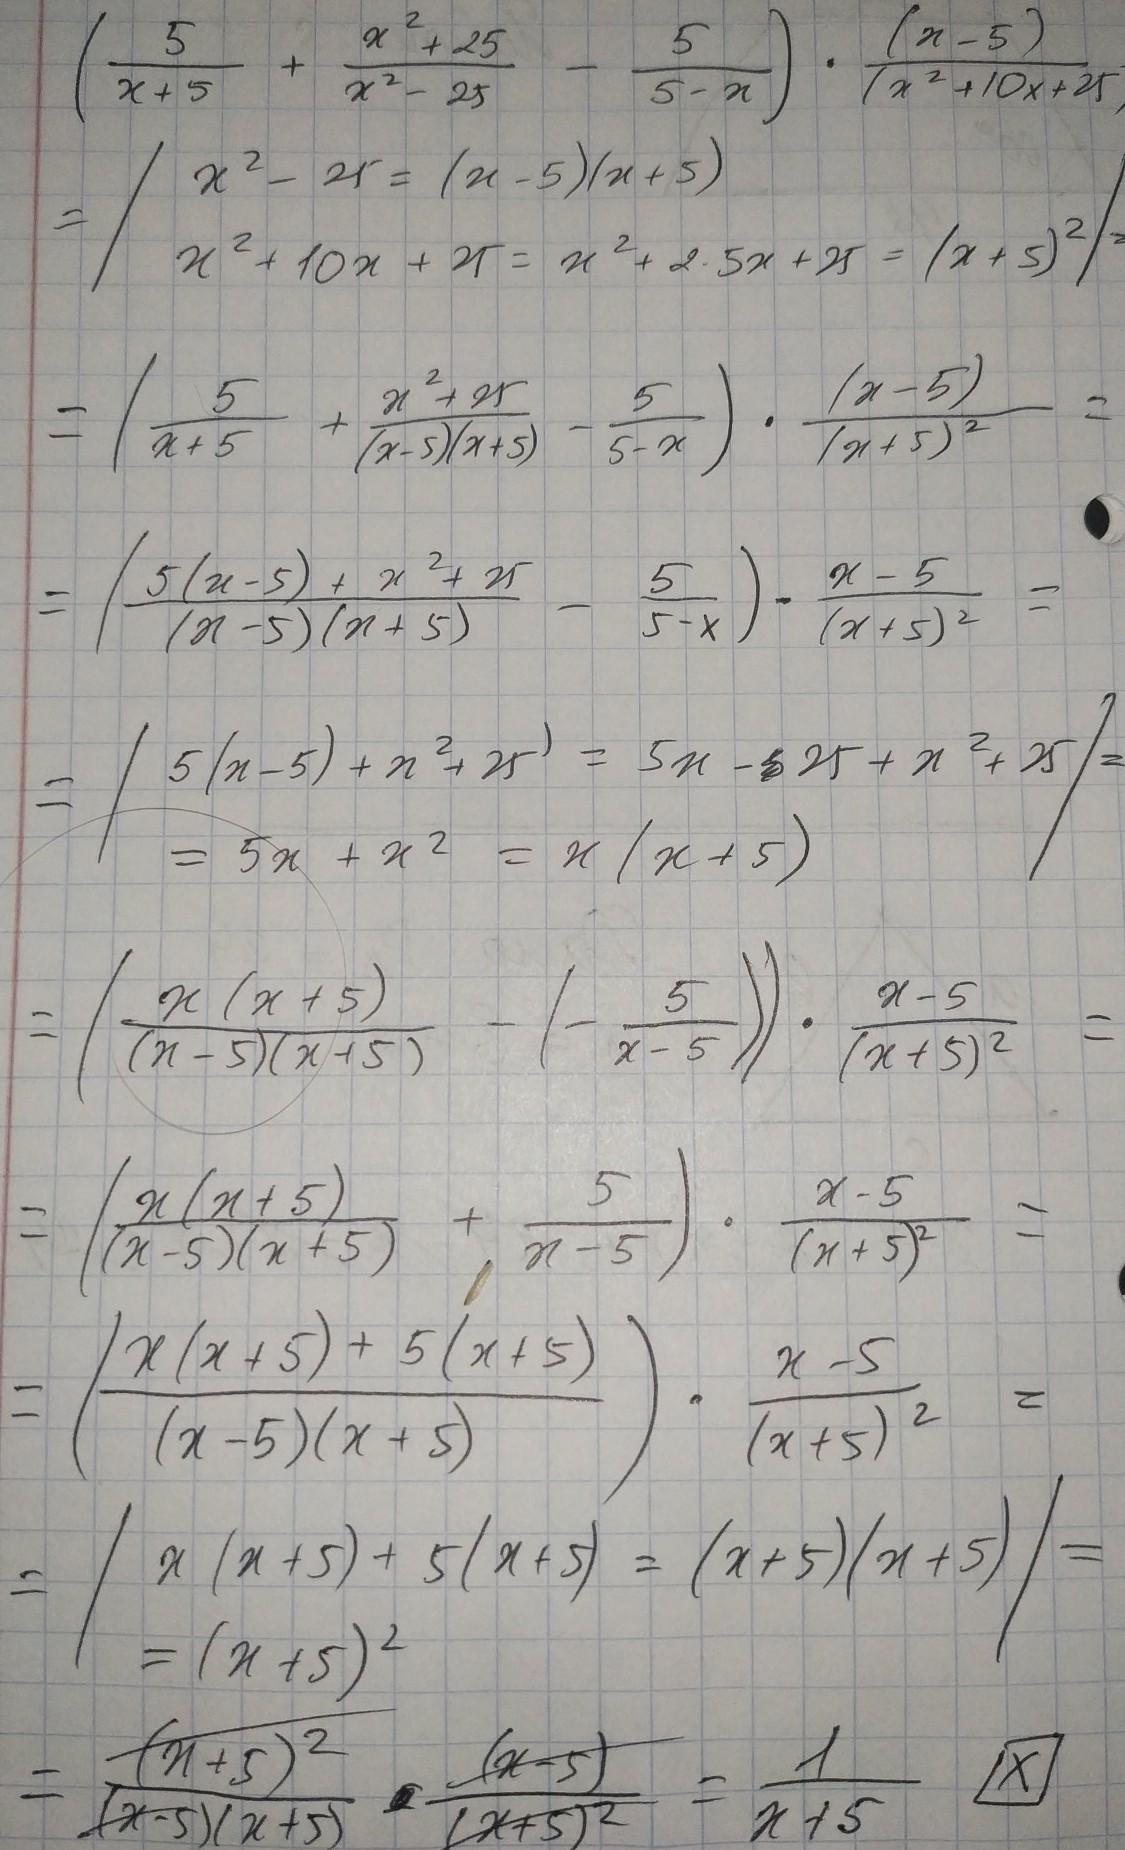 (5/(x+5) + (x²+25)/(x²-25) - 5/(5-x)) · (x-5)/(x²+10x+25)
= / x²- 25 = (x-5)(x+5)
x²+10x+25 = x²+2·5x+25 = (x+5)² / =
= (5/(x+5) + (x²+25)/((x-5)(x+5)) - 5/(5-x)) · (x-5)/(x+5)² =
= ((5(x-5) + x²+25)/((x-5)(x+5)) - 5/(5-x)) · (x-5)/(x+5)² =
= / 5(x-5)+x²+25) = 5x-25+x²+25 / =
= 5x + x² = x(x+5)
= (x(x+5)/((x-5)(x+5)) - (- 5/(x-5))) · (x-5)/(x+5)² =
= (x(x+5)/((x-5)(x+5)) + 5/(x-5)) · (x-5)/(x+5)² =
= ((x(x+5) + 5(x+5))/((x-5)(x+5))) · (x-5)/(x+5)² =
= / x(x+5) + 5(x+5) = (x+5)(x+5) / =
= (x+5)²
= (x+5)²/((x-5)(x+5)) · (x-5)/(x+5)² = 1/(x+5) X